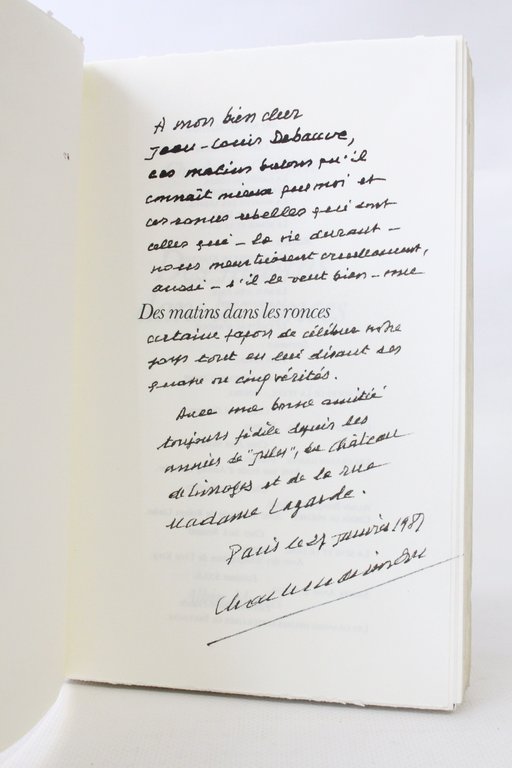 A mon bien cher
Jean-Louis Debauve,
ces matins bretons qu'il
connaît mieux que moi et
ces ronces rebelles qui sont
celles qui – la vie durant –
nous meurtrissent cruellement,
aussi – s'il le veut bien – une
Des matins dans les ronces
certaine façon de célébrer notre
pays tout en lui disant ses
quatre ou cinq vérités.
Avec ma bonne amitié
toujours fidèle depuis les
années de "Jules", du château
de Limoges et de la rue
Madame Lagarde.
Paris le 27 janvier 1987